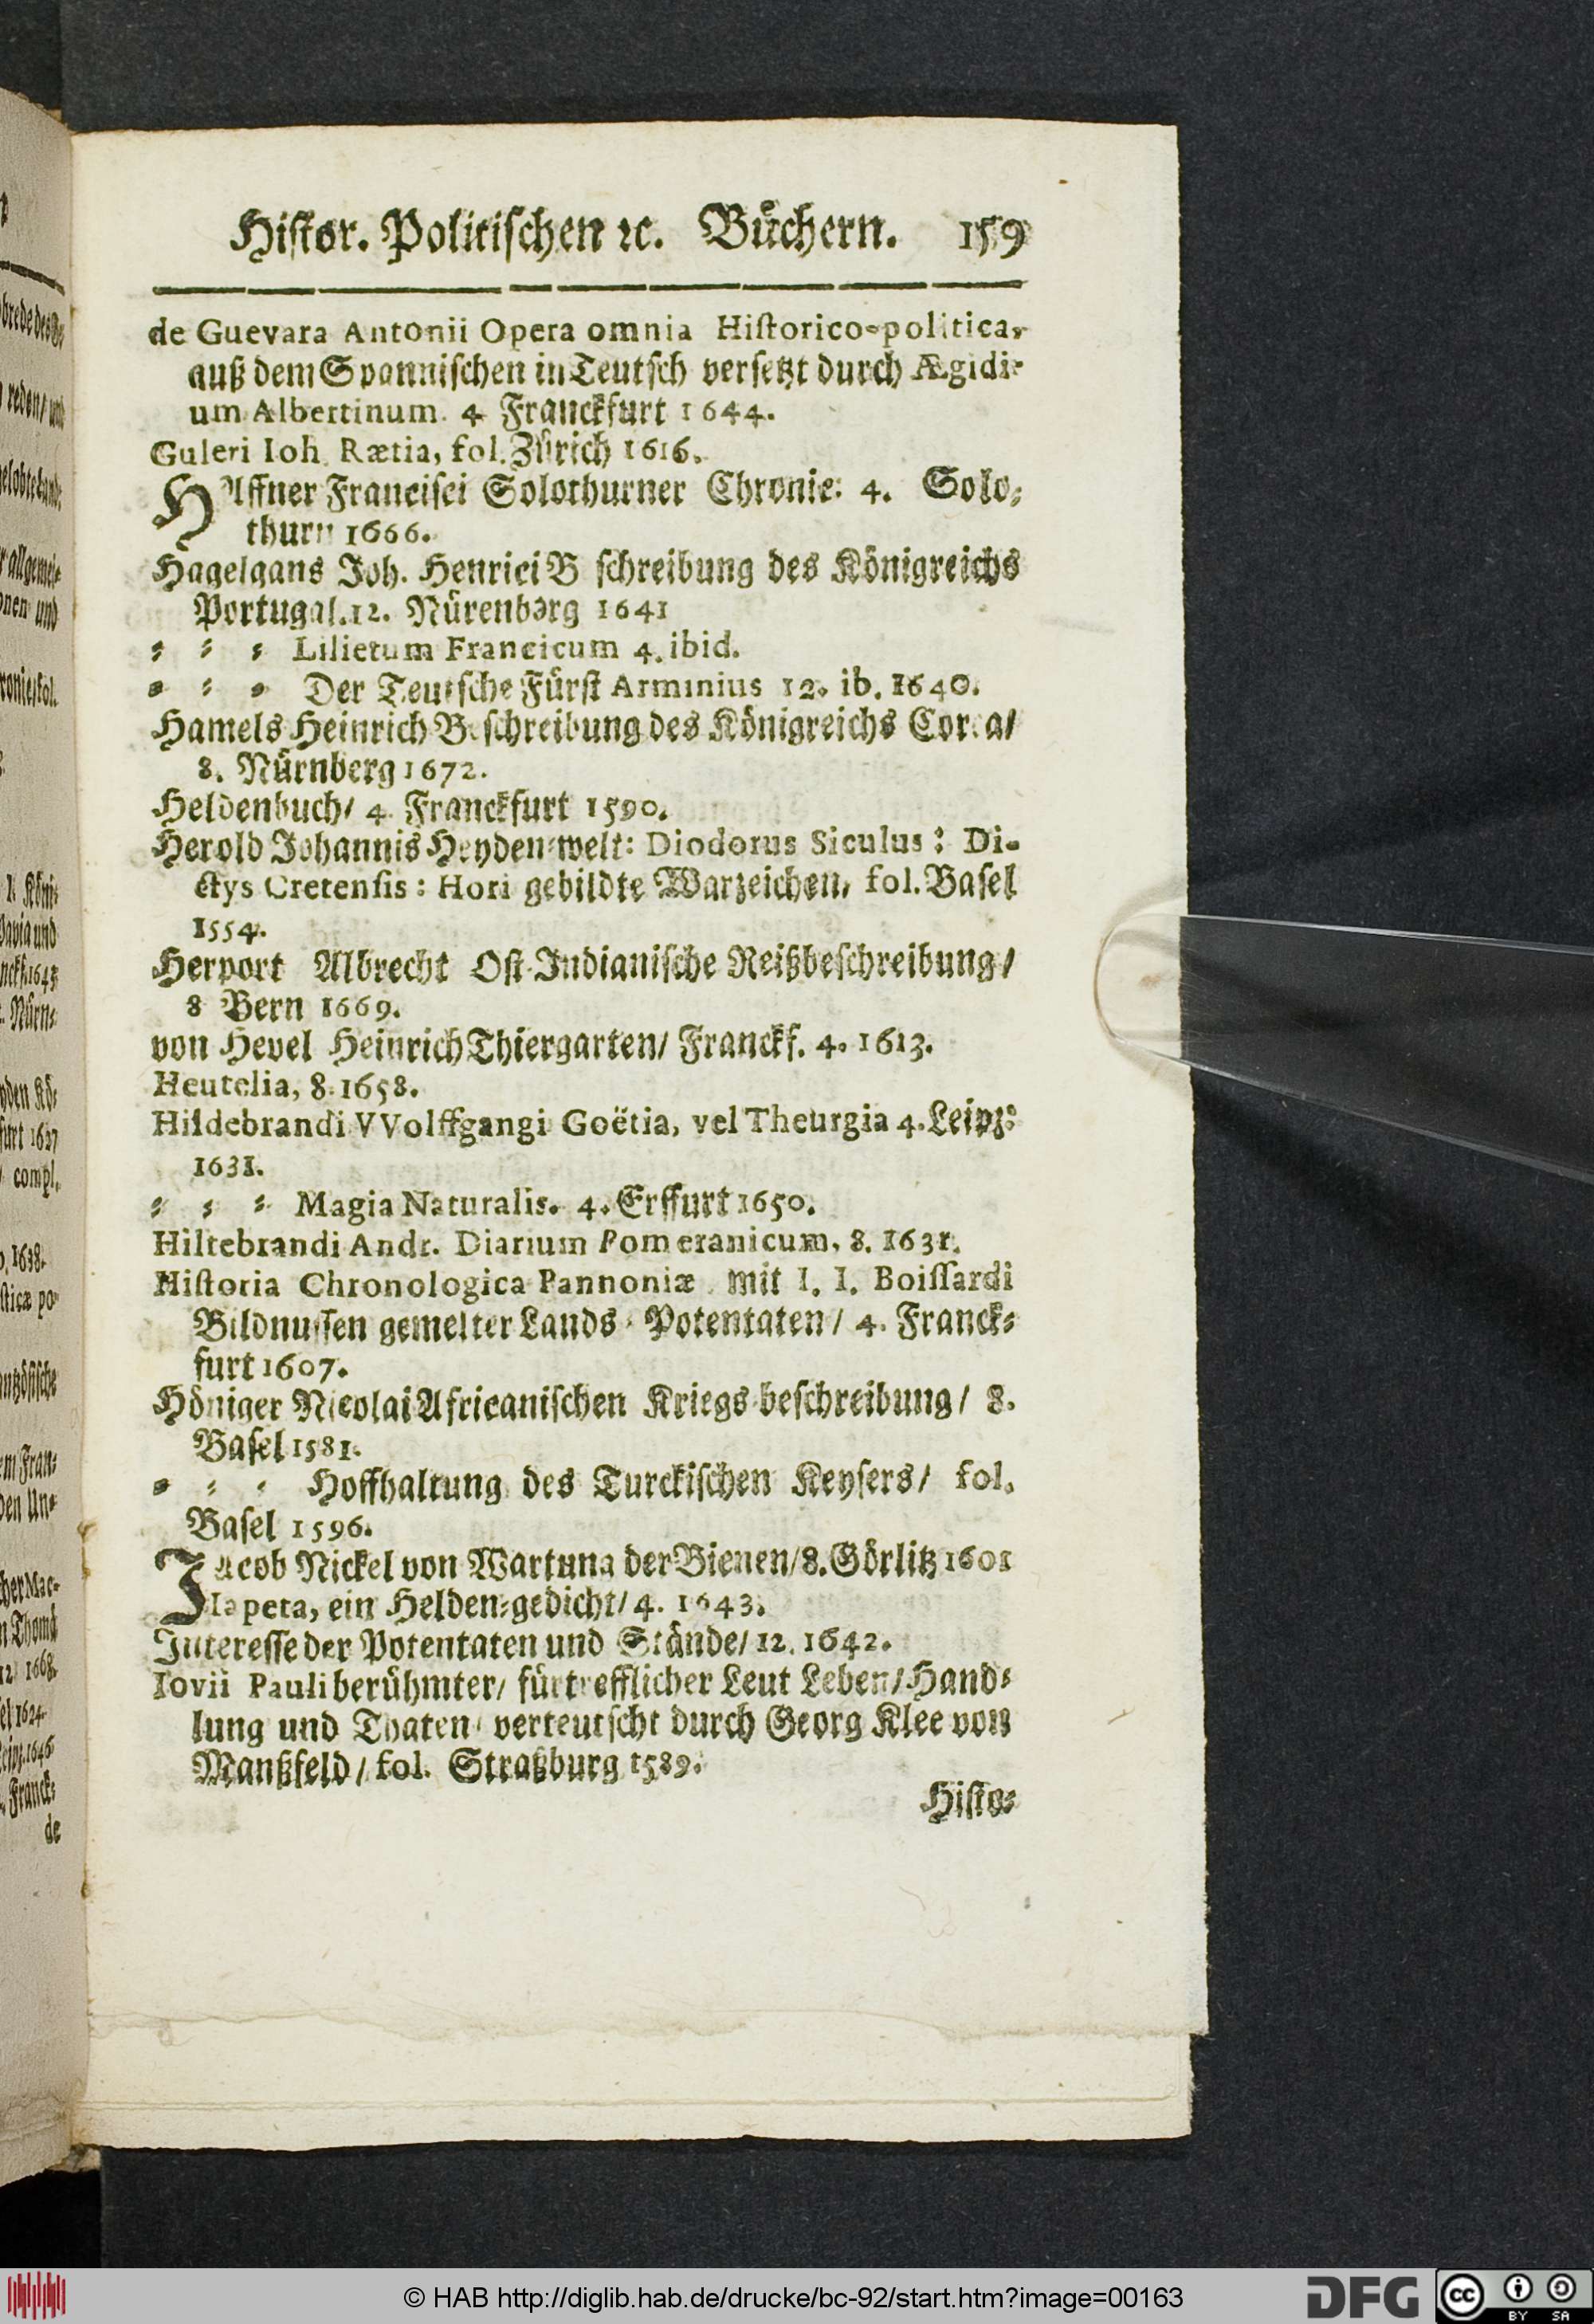 Histor. Politischen ꝛc. Büchern. 159
de Guevara Antonii Opera omnia Historico-politica,
auß dem Spannischen in Teutsch versetzt durch Ægidi-
um Albertinum. 4 Franckfurt 1644.
Guleri Ioh. Rætia, fol. Zürich 1616.
HAffner Francisci Solothurner Chronic: 4. Solo-
thurn 1666.
Hagelgans Joh. Henrici B schreibung des Königreichs
Portugal. 12. Nürenberg 1641
- - - Lilietum Francicum 4. ibid.
- - - Der Teutsche Fürst Arminius 12. ib. 1640.
Hamels Heinrich Beschreibung des Königreichs Corea/
8. Nürnberg 1672.
Heldenbuch/ 4. Franckfurt 1590.
Herold Johannis Heyden-welt: Diodorus Siculus: Di-
ctys Cretensis: Hori gebildte Warzeichen, fol. Basel
1554.
Herport Albrecht Ost-Indianische Reißbeschreibung/
8 Bern 1669.
von Hevel Heinrich Thiergarten/ Franckf. 4. 1613.
Heutelia, 8. 1658.
Hildebrandi VVolffgangi Goëtia, vel Theurgia 4. Leipz:
1631.
- - - Magia Naturalis. 4. Erffurt 1650.
Hiltebrandi Andr. Diarium Pomeranicum, 8. 1631.
Historia Chronologica Pannoniæ, mit I. I. Boissardi
Bildnussen gemelter Lands-Potentaten/ 4. Franck-
furt 1607.
Höniger Nicolai Africanischen Kriegs-beschreibung/ 8.
Basel 1581.
- - - Hoffhaltung des Turckischen Keysers/ fol.
Basel 1596.
Jacob Nickel von Wartung der Bienen/8. Görlitz 1601
Iapeta, ein Helden-gedicht/ 4. 1643.
Interesse der Potentaten und Stände/ 12. 1642.
Iovii Pauli berühmter/ fürtrefflicher Leut Leben/ Hand-
lung und Thaten/ verteutscht durch Georg Klee von
Manßfeld/ fol. Straßburg 1589.
Histo-
© HAB http://diglib.hab.de/drucke/bc-92/start.htm?image=00163
DFG
cc BY SA